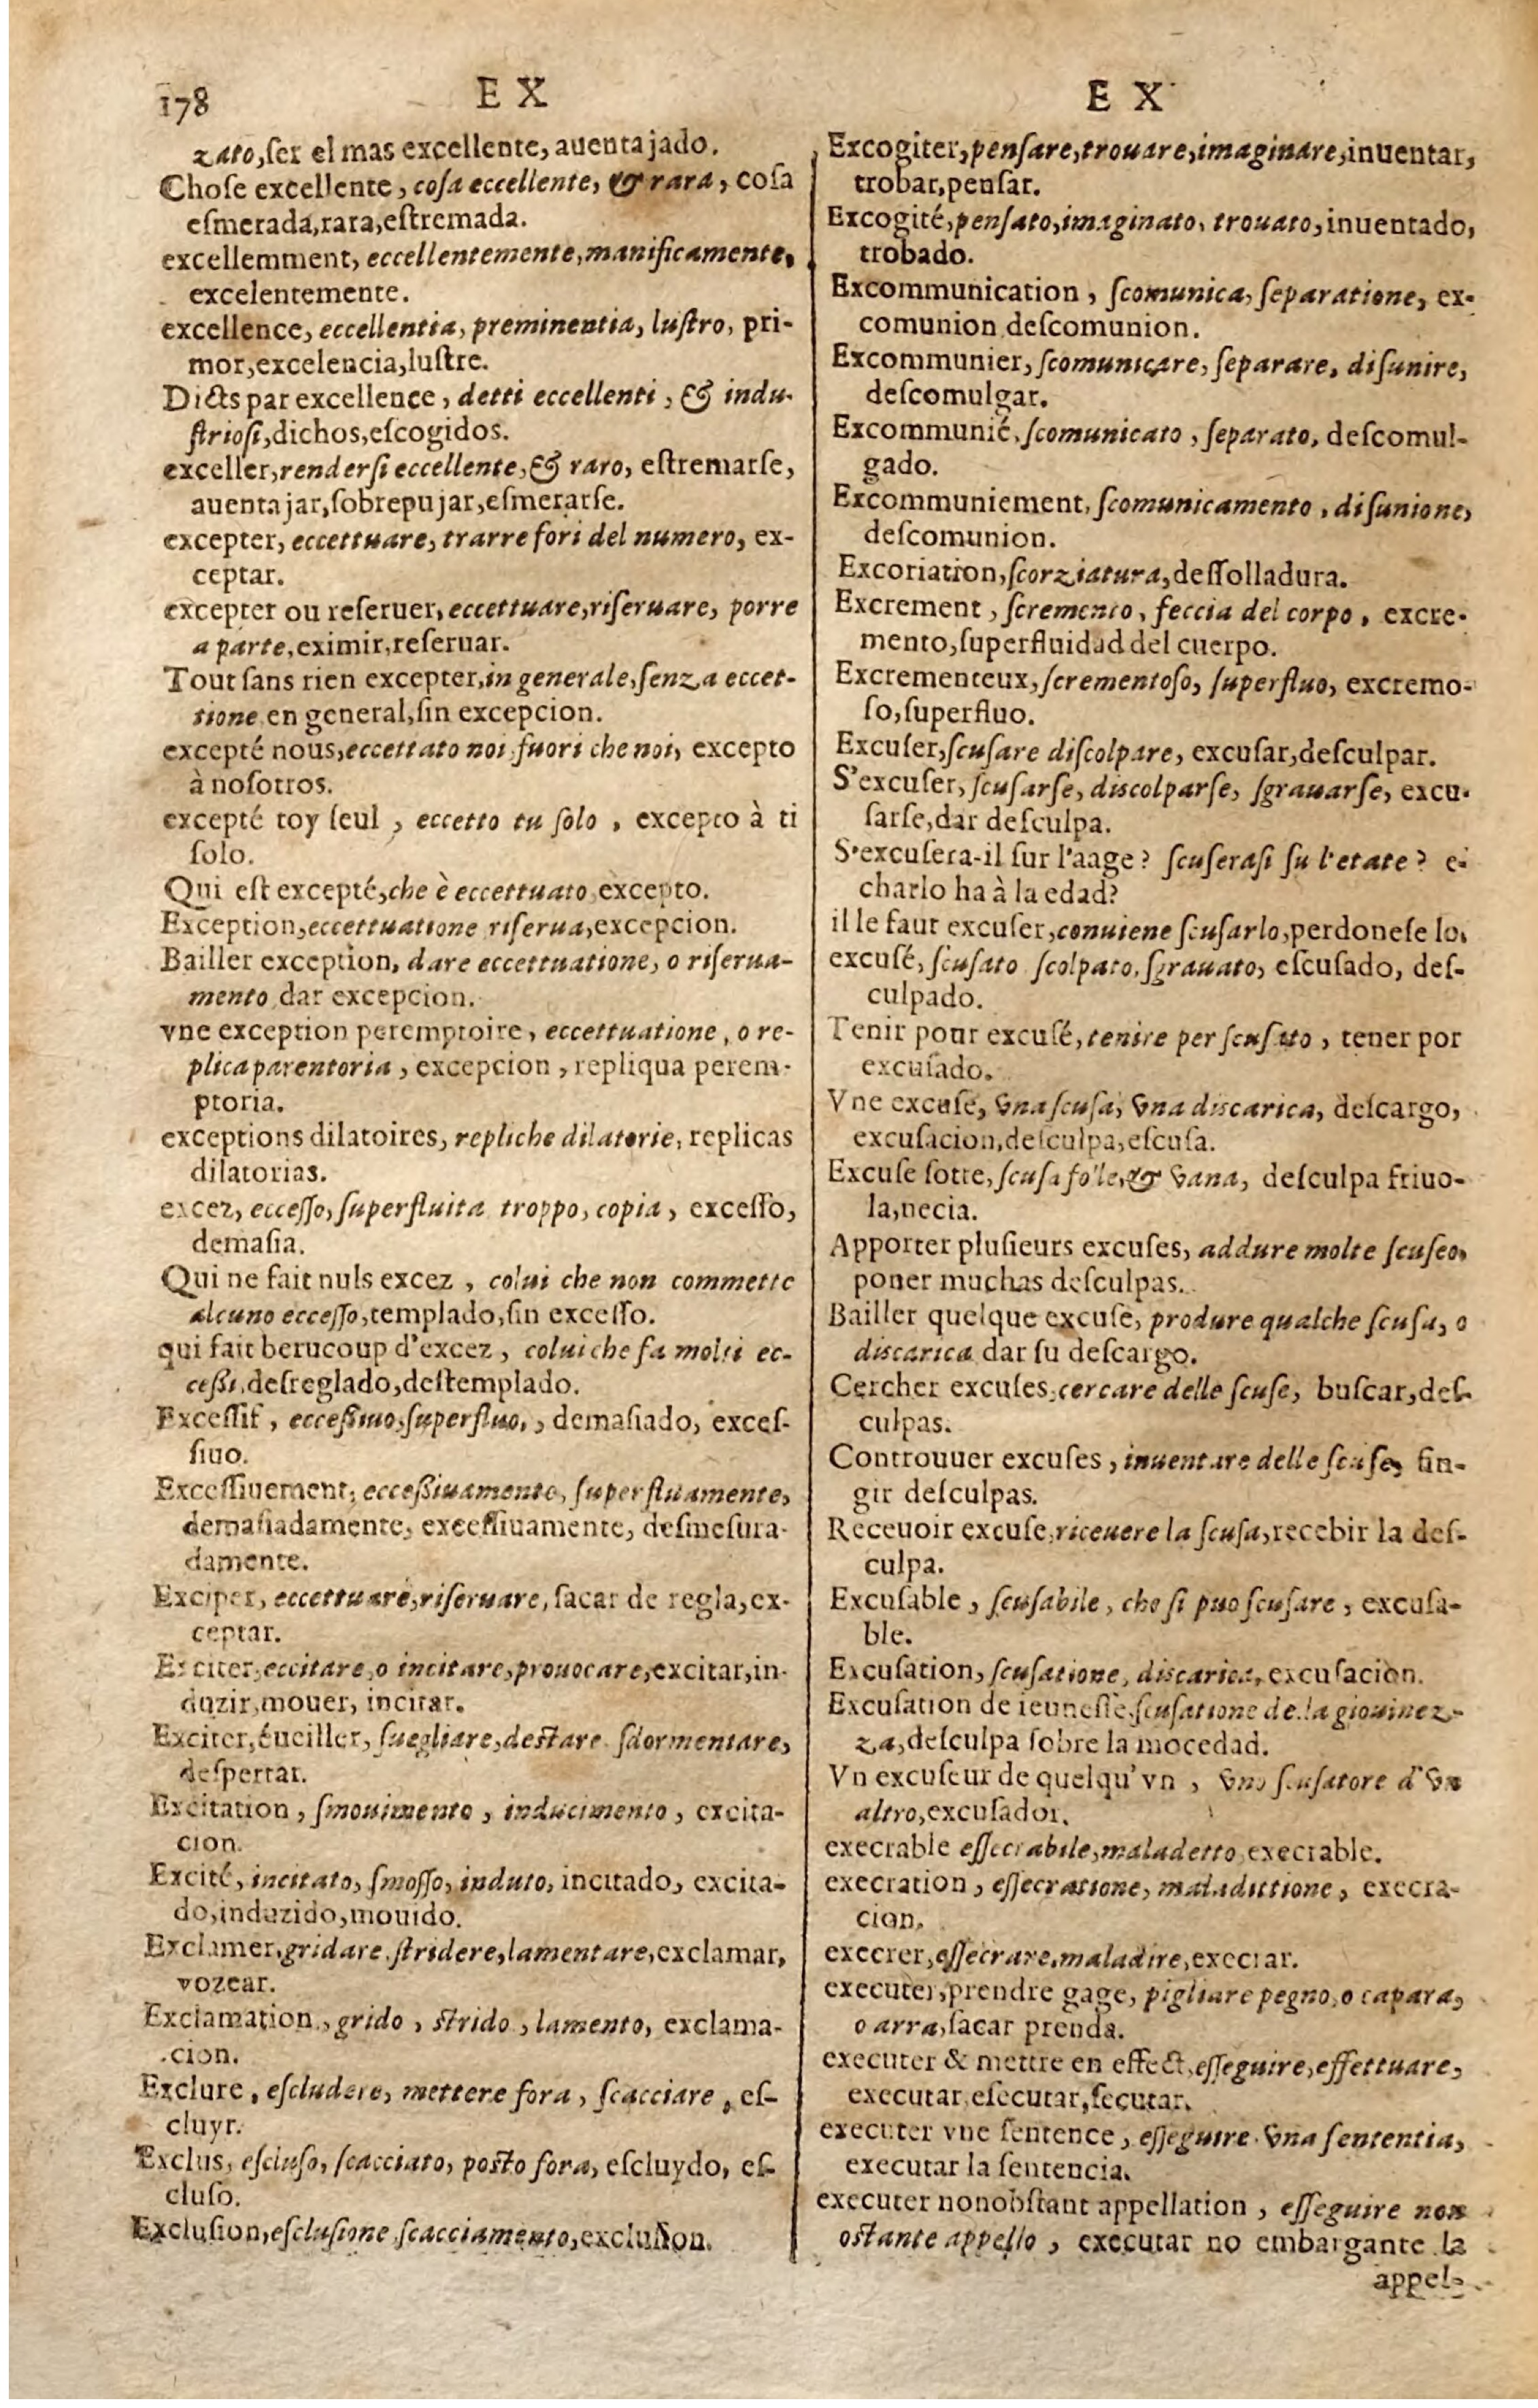 178
E X
zato, ſer el mas excellente, auentajado.
Choſe excellente, coſa eccellente, & rara, coſa
eſmerada, rara, eſtremada.
excellemment, eccellentemente, manificamente,
excelentemente.
excellence, eccellentia, preminentia, luſtro, pri-
mor, excelencia, luſtre.
Dicts par excellence, detti eccellenti, & indu-
ſtrioſi, dichos, eſcogidos.
exceller, renderſi eccellente, & raro, eſtremarſe,
auentajar, ſobrepujar, eſmerarſe.
excepter, eccettuare, trarre fori del numero, ex-
ceptar.
excepter ou reſeruer, eccettuare, riſeruare, porre
a parte, eximir, reſeruar.
Tout ſans rien excepter, in generale, ſenza eccet-
tione en general, ſin excepcion.
excepté nous, eccettato noi fuori che noi, excepto
à noſotros.
excepté toy ſeul, eccetto tu ſolo, excepto à ti
ſolo.
Qui eſt excepté, che è eccettuato excepto.
Exception, eccettuatione riſerua, excepcion.
Bailler exception, dare eccettuatione, o riſerua-
mento dar excepcion.
vne exception peremptoire, eccettuatione, o re-
plica parentoria, excepcion, repliqua perem-
ptoria.
exceptions dilatoires, repliche dilatorie, replicas
dilatorias.
excez, ecceſſo, ſuperfluita troppo, copia, exceſſo,
demaſia.
Qui ne fait nuls excez, colui che non commette
alcuno ecceſſo, templado, ſin exceſſo.
qui fait berucoup d'excez, colui che fa molti ec-
ceßi, deſreglado, deſtemplado.
Exceſſif, acceßiuo, ſuperfluo, , demaſiado, exceſ-
ſiuo.
Exceſſiuement, ecceßiuamente, ſuperfluamente,
demaſiadamente, exceſſiuamente, deſmeſura-
damente.
Exciper, eccettuare, riſeruare, ſacar de regla, ex-
ceptar.
Exciter, eccitare, o incitare, prouocare, excitar, in-
duzir, mouer, incitar.
Exciter, éueiller, ſuegliare, deſtare ſdormentare,
deſpertar.
Excitation, ſmouimento, inducimento, excita-
cion.
Excité, incitato, ſmoſſo, induto, incitado, excita-
do, induzido, mouido.
Exclamer, gridare, ſtridere, lamentare, exclamar,
vozear.
Exclamation, grido, ſtrido, lamento, exclama-
cion.
Exclure, eſcludere, mettere fora, ſcacciare, eſ-
cluyr.
Exclus, eſcluſo, ſcacciato, poſto fora, eſcluydo, eſ-
cluſo.
Excluſion, eſcluſione, ſcacciamento, excluſſon.
E X
Excogiter, penſare, trouare, imaginare, inuentar,
trobar, penſar.
Excogité, penſato, imaginato, trouato, inuentado,
trobado.
Excommunication, ſcomunica, ſeparatione, ex-
comunion deſcomunion.
Excommunier, ſcomunicare, ſeparare, diſunire,
deſcomulgar.
Excommunié, ſcomunicato, ſeparato, deſcomul-
gado.
Excommuniement, ſcomunicamento, diſunione,
deſcomunion.
Excoriation, ſcorziatura, deſſolladura.
Excrement, ſcremento, feccia del corpo, excre-
mento, ſuperfluidad del cuerpo.
Excrementeux, ſcrementoſo, ſuperfluo, excremo-
ſo, ſuperfluo.
Excuſer, ſcuſare diſcolpare, excuſar, deſculpar.
S'excuſer, ſcuſarſe, diſcolparſe, ſgrauarſe, excu-
ſarſe, dar deſculpa.
S'excuſera-il ſur l'aage? ſcuſeraſi ſu l'etate? e-
charlo ha à la edad?
il le faut excuſer, conuiene ſcuſarlo, perdoneſe lo.
excuſé, ſcuſato ſcolpato, ſgrauato, eſcuſado, deſ-
culpado.
Tenir pour excuſé, tenire per ſcuſato, tener por
excuſado.
Vne excuſe, vna ſcuſa, vna diſcarica, deſcargo,
excuſacion, deſculpa, eſcuſa.
Excuſe ſotte, ſcuſa folle, & vana, deſculpa friuo-
la, necia.
Apporter pluſieurs excuſes, addure molte ſcuſeo,
poner muchas deſculpas.
Bailler quelque excuſe, produre qualche ſcuſa, o
diſcarica dar ſu deſcargo.
Cercher excuſes, cercare delle ſcuſe, buſcar, deſ-
culpas.
Controuuer excuſes, inuentare delle ſcuſe, fin-
gir deſculpas.
Receuoir excuſe, riceuere la ſcuſa, recebir la deſ-
culpa.
Excuſable, ſcuſabile, che ſi puo ſcuſare, excuſa-
ble.
Excuſation, ſcuſatione, diſcarica, excuſacion.
Excuſation de ieuneſſe, ſcuſatione de la giouinez-
za, deſculpa ſobre la mocedad.
Vn excuſeur de quelqu'vn, vno ſcuſatore d'vn
altro, excuſador.
execrable eſſecrabile, maladetto execrable.
execration, eſſecratione, maladittione, execra-
cion.
execrer, eſſecrare, maladire, execrar.
executer, prendre gage, pigliare pegno, o capara,
o arra, ſacar prenda.
executer & mettre en effect, eſſeguire, effettuare,
executar eſecutar, ſecutar.
executer vne ſentence, eſſeguire vna ſententia,
executar la ſentencia.
executer nonobſtant appellation, eſſeguire non
oſtante appello, executar no embargante la
appel-